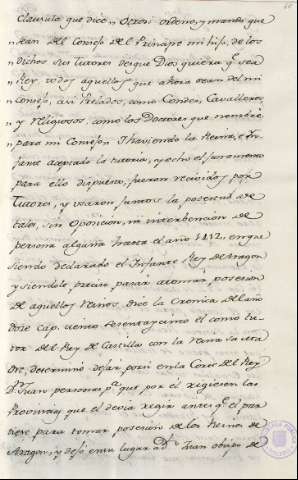 Clausula que dice "Otrosi ordeno, y mando que
" sean del Consejo del Principe mi hijo, de los
" dichos sus Tutores desque Dios quiera q.e sea
" Rey todos aquellos que ahora sean del mi
" Consejo, asi Prelados, como Condes, Cavalleros
" y religiosos, como los Doctores que nombré
" para mi Consejo" I haviendo la Reina, e Ynfante
aceptado la tutoria, y echo el juramento
para ello dispuesto, fueron recividos por
Tutores, y usaron juntos la potestad de
tales, sin oposicion, ni intervencion de
persona alguna hasta el año 1412, en que
siendo declarado el Infante Rey de Aragon
y siendole preciso pasar a tomar posesion
de aquellos Reinos, dice la Cronica del año
doze Cap. ciento sesenta y cinco el como tutor
del Rey de Castilla con la Reina su Madre,
determinó dejar, poner en la Corte del Rey
D.n Juan personas p.a que por el rigiesen las
Provincias que el devia regir antes q.e el partiese
para tomar posesion de los Reinos de
Aragon, y dejó en su lugar a D.n Juan obispo de